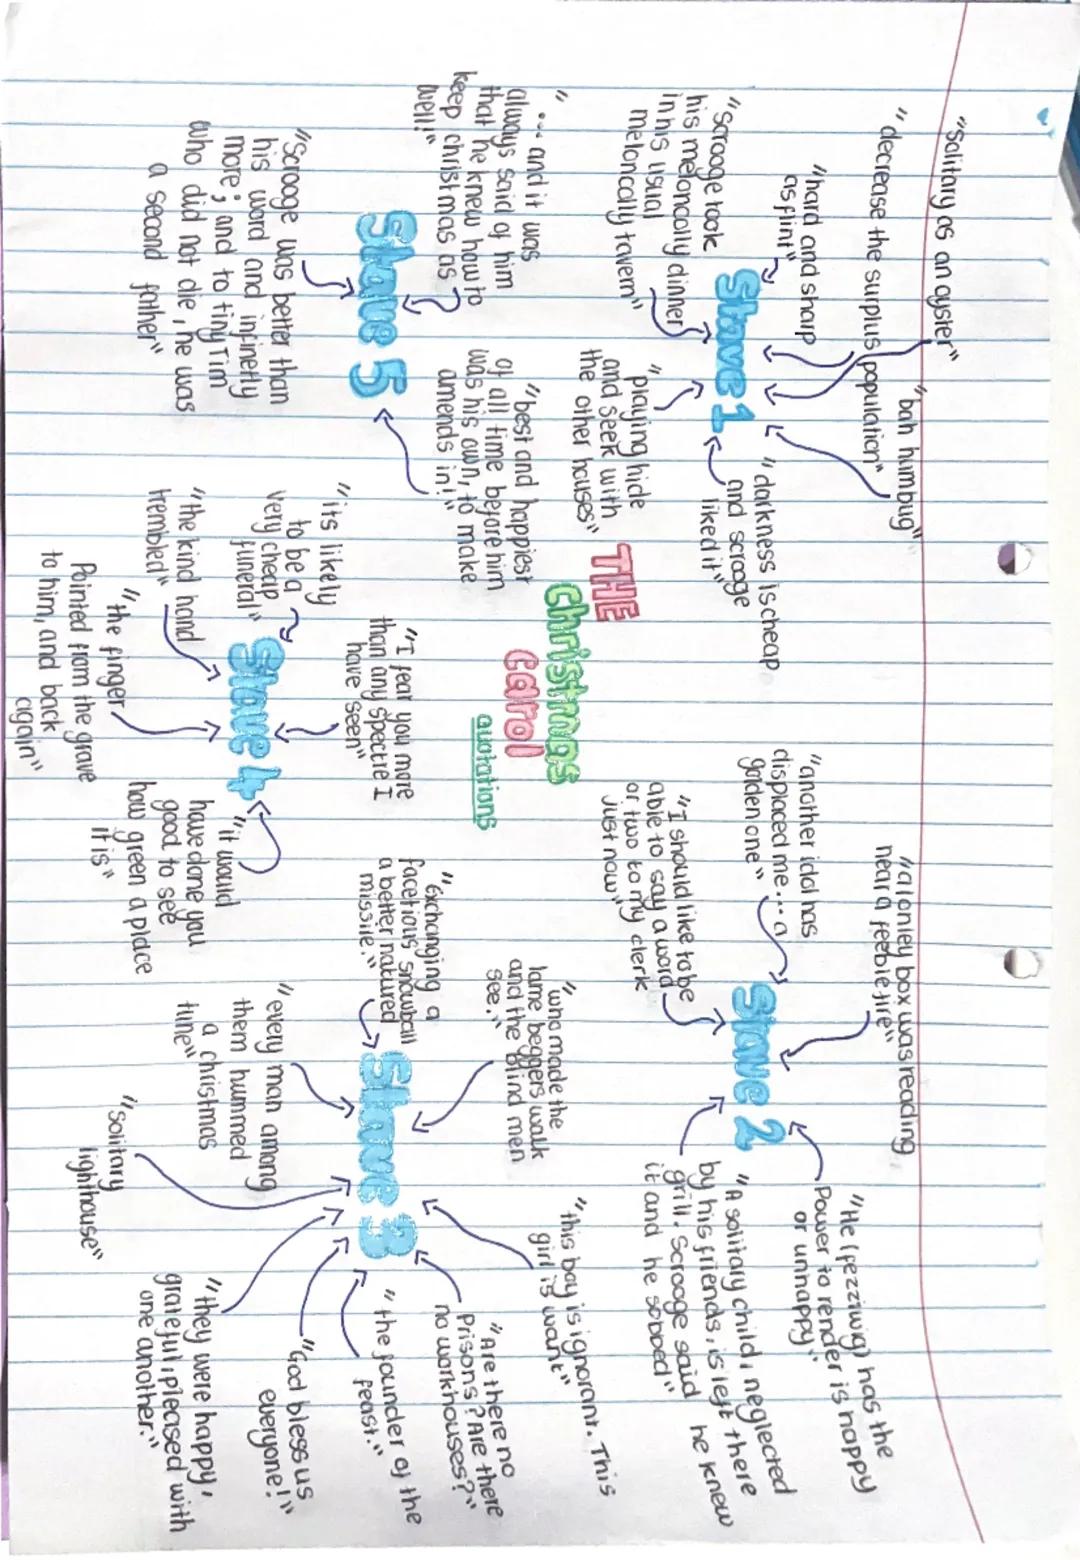 "Solitary as an oyster"
"bah humbug"
"decrease the surplus population"
"hard and sharp
as flint"
"darkness is cheap
and scrooge
liked it"
Stave 1
"Scrooge took
his meloncolly dinner
in his usual
meloncolly tavern"
"playing hide
and seek with
the other houses"
"a lonley boy was reading
near a feeble fire"
"another idol has
displaced me... a
golden one"
"He (fezziwig) has the
Power to render is happy
or unhappy"
Stave 2
"I should like to be
able to say a word
or two to my clerk
just now"
"A solitary child, neglected
by his friends, is left there
grill. Scrooge said he knew
it and he sobbed"
THE
christmas
carol
quotations
"... and it was
always said of him
that he knew how to
keep christmas as
well!"
"best and happiest
of all time before him
was his own, to make
amends in!"
Stave 5
"Scrooge was better than
his word and infinetly
more; and to tiny Tim
who did not die, he was
a second father"
"I fear you more
than any spectre I
have seen"
"its likely
to be a
very cheap
funeral"
Stave 4
"the kind hand
trembled"
"it would
have done you
good to see
how green a place
it is"
"the finger
Pointed from the grave
to him, and back
again"
"who made the
lame beggers walk
and the blind men
see."
"this boy is ignorant. This
girl is want"
"exchanging a
facetious snowball
a better natured
missile."
"Are there no
Prisons? Are there
no workhouses?"
Stave 3
"the founder of the
feast."
"every man among
them hummed
a christmas
tune"
"God bless us
everyone!"
"solitary
lighthouse"
"they were happy,
grateful, pleased with
one another."